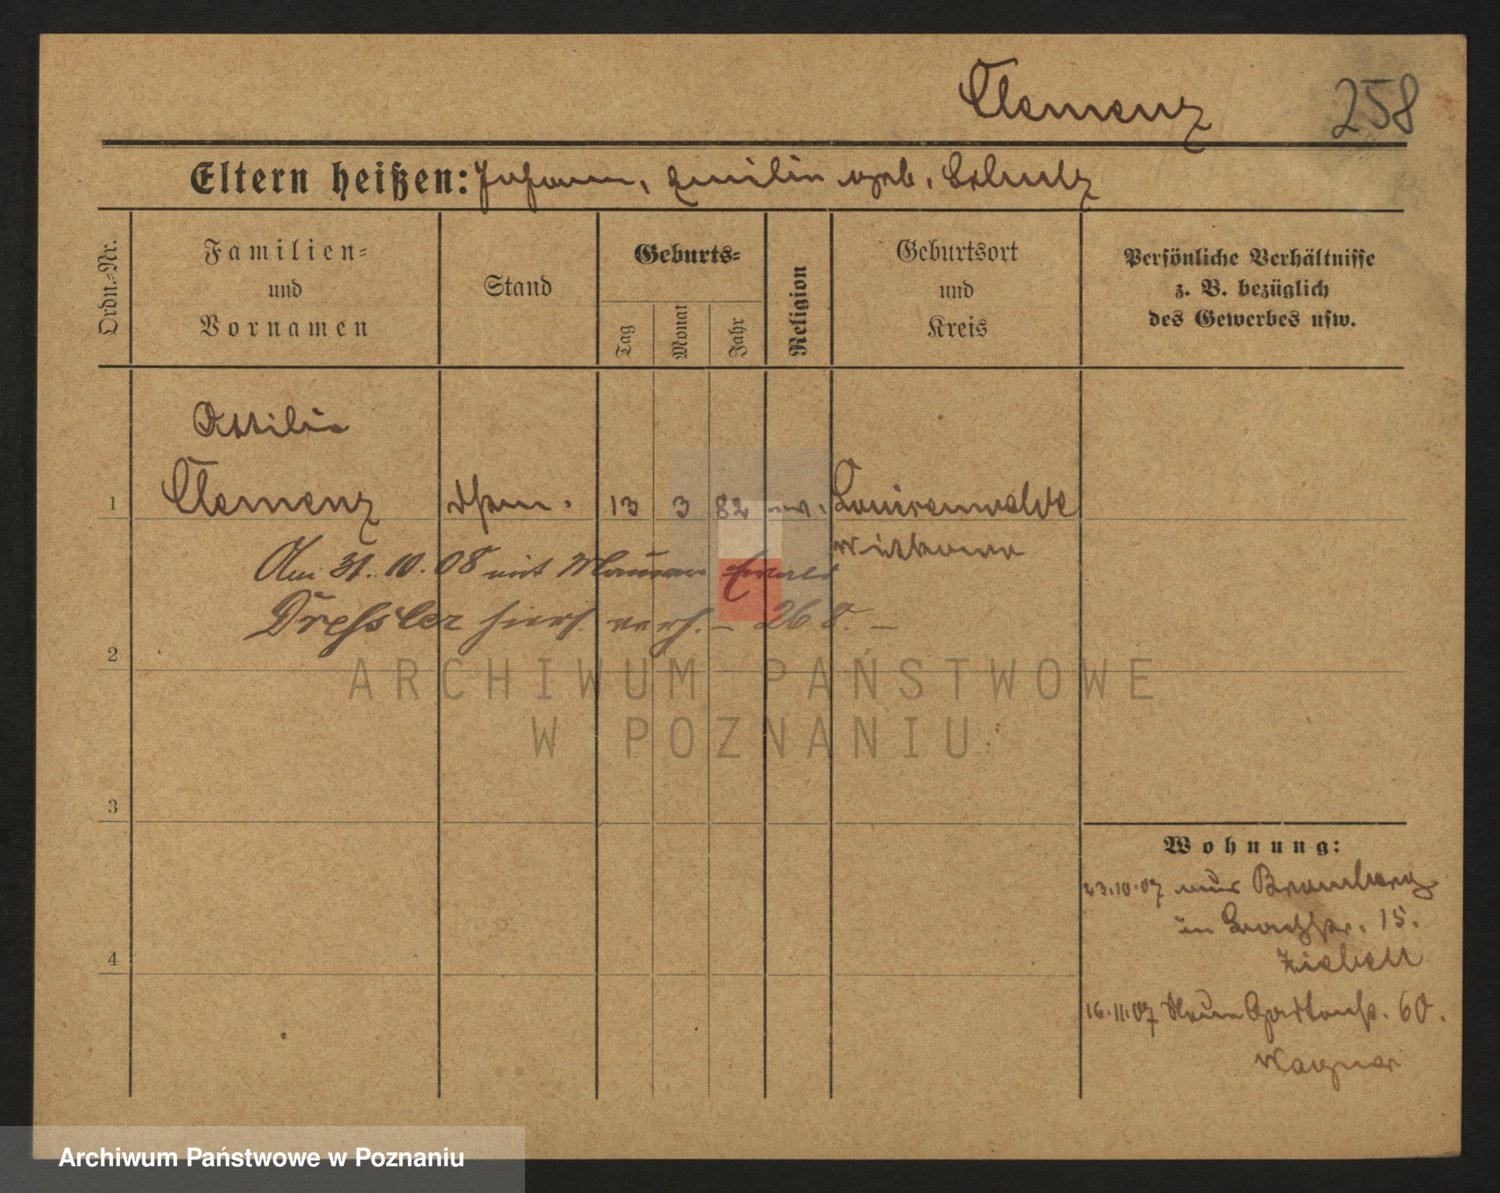 Clemenz
258
Eltern heißen: Johann, Emilie geb. Schulz
Ordn.-Nr.
Familien-
und
Vornamen
Stand
Geburts-
Tag
Monat
Jahr
Religion
Geburtsort
und
Kreis
Persönliche Verhältnisse
z. B. bezüglich
des Gewerbes usw.
Ottilie
1 Clemenz 13 3 82 ev. Louisenwalde
Witkowo
Am 31.10.08 mit Maurer Ewald
Dressler hiers. verh. – 268. –
2
ARCHIWUM PAŃSTWOWE
W POZNANIU
3
Wohnung:
23.10.07 aus Bromberg
in 15.
4
16.11.07 Neue Gartenstr. 60.
Wagner
Archiwum Państwowe w Poznaniu